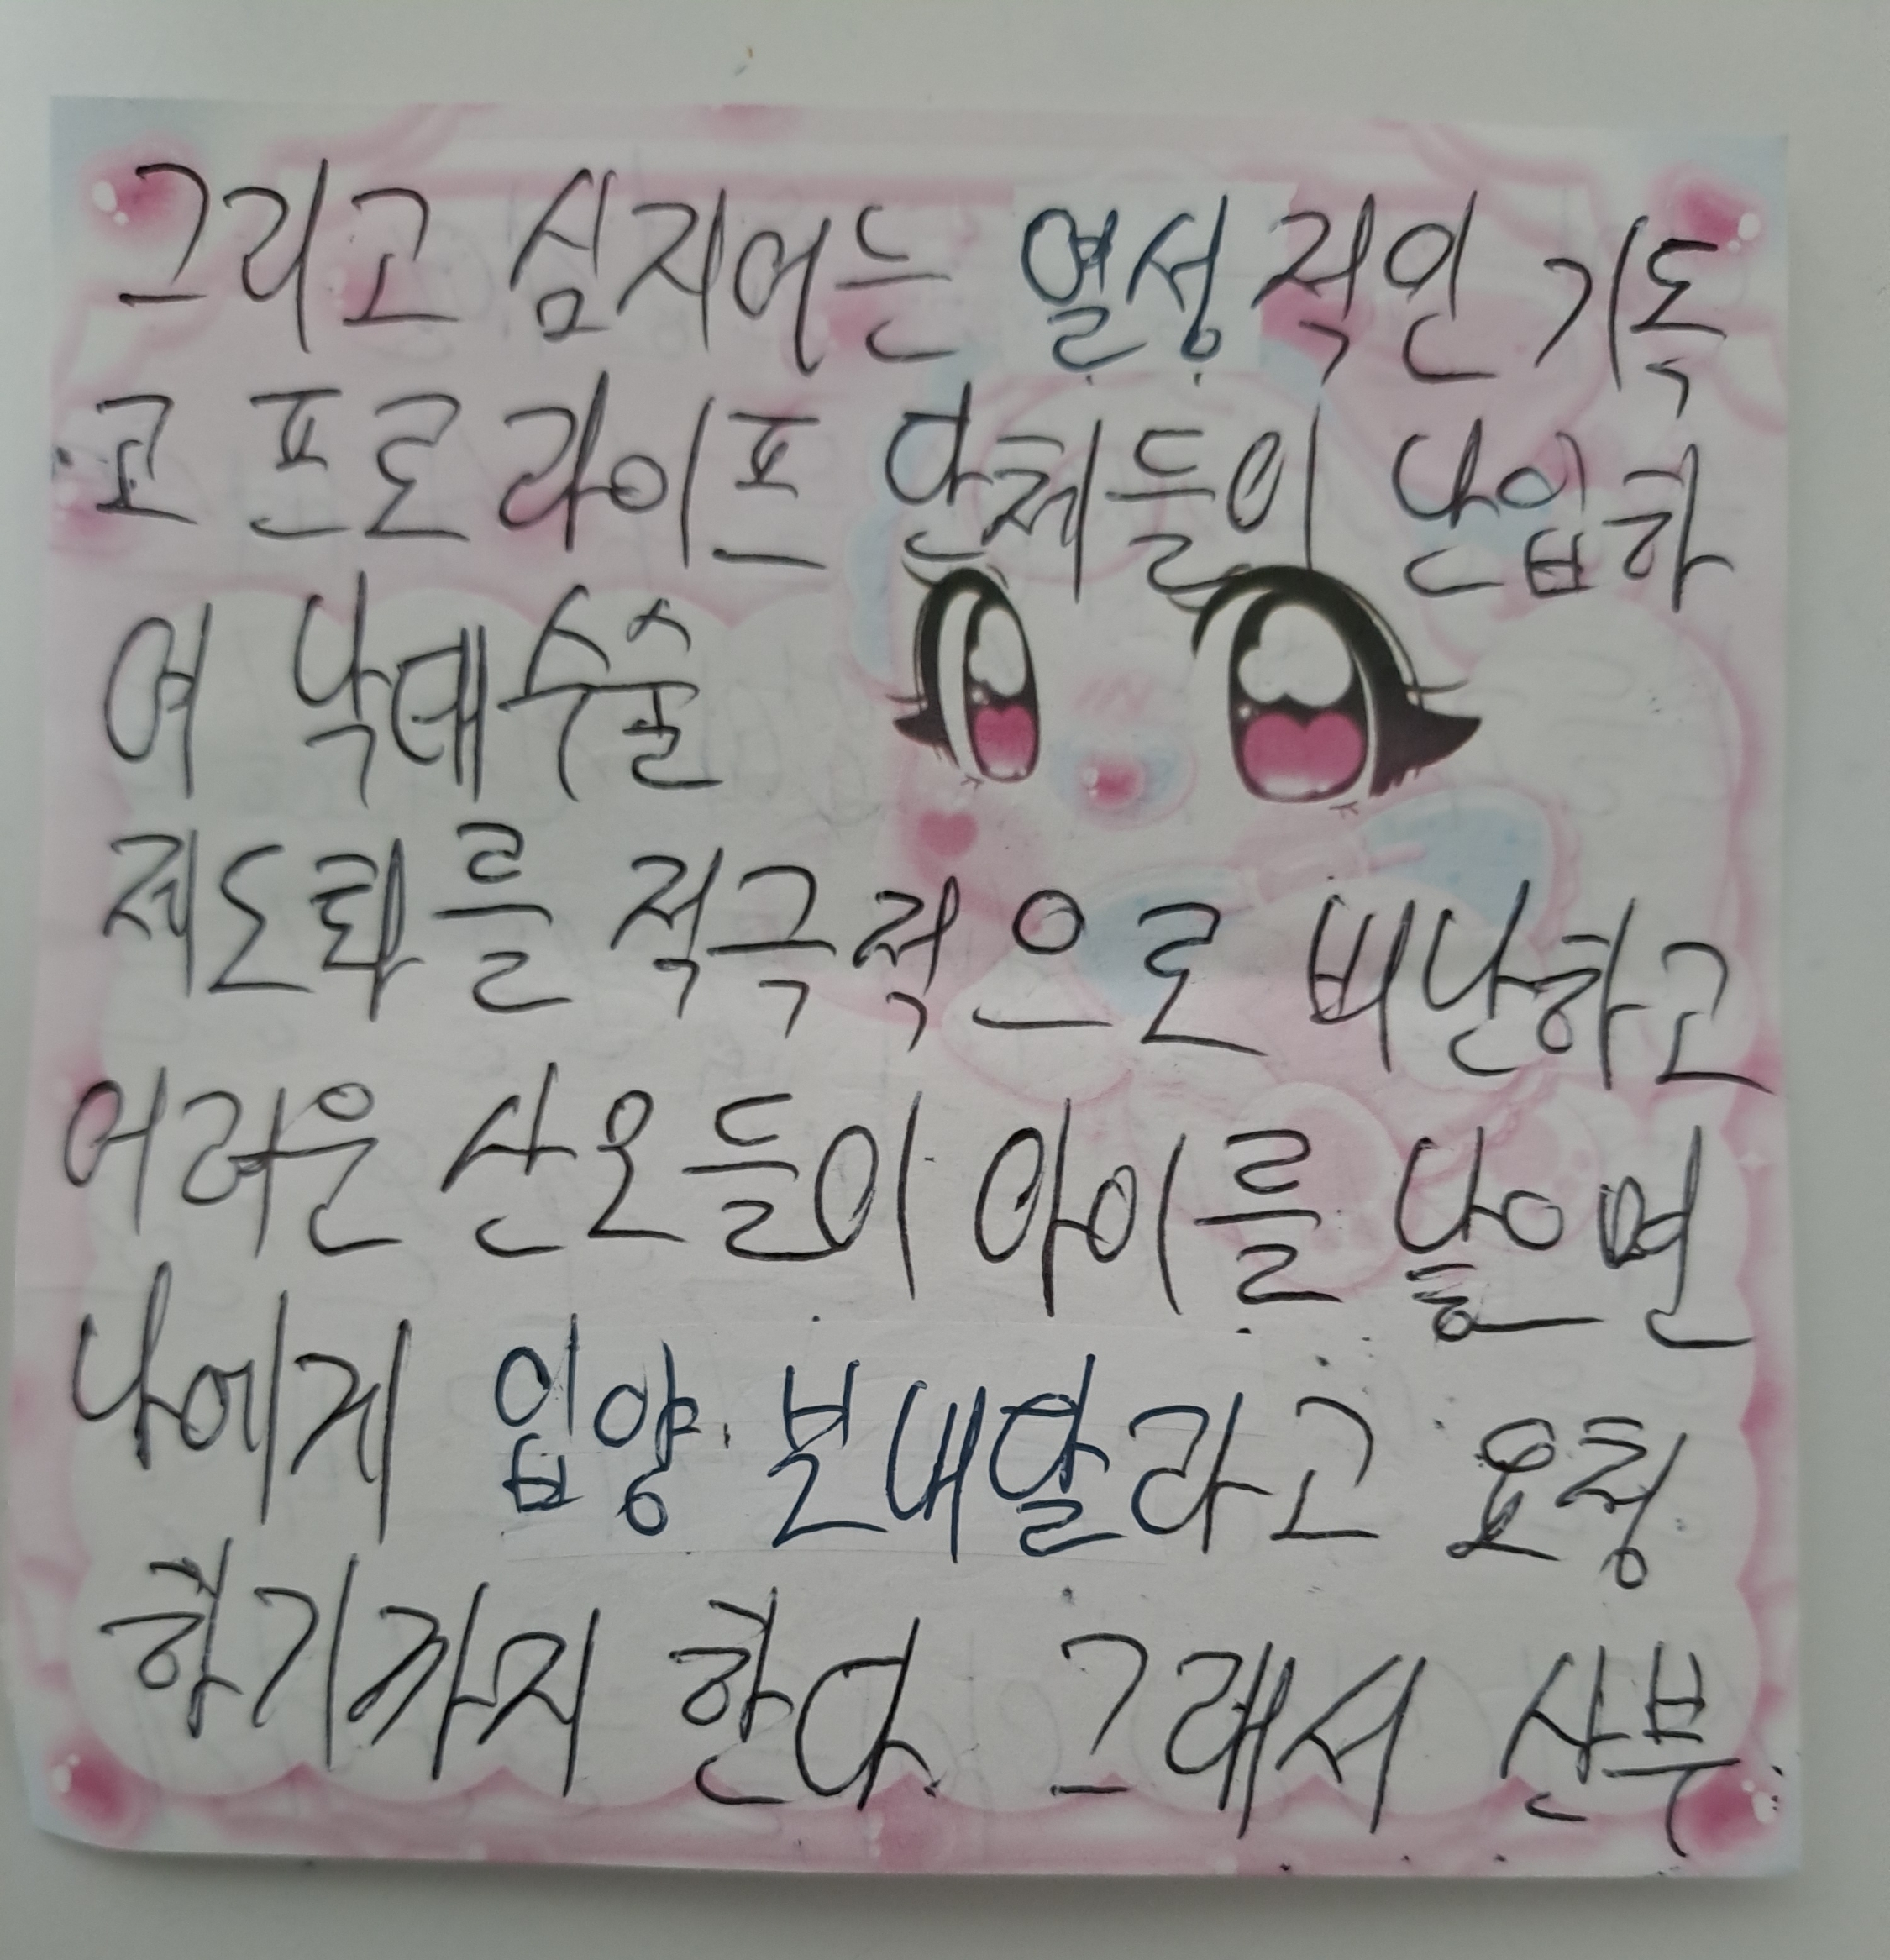 그리고 심지어는 열성적인 기독
교 프로라이프 단체들이 난입하
여 낙태수술
제도화를 적극적으로 비난하고
어려운 산모들이 아이를 낳으면
나에게 입양 보내달라고 요청
하기까지 한다 그래서 산부